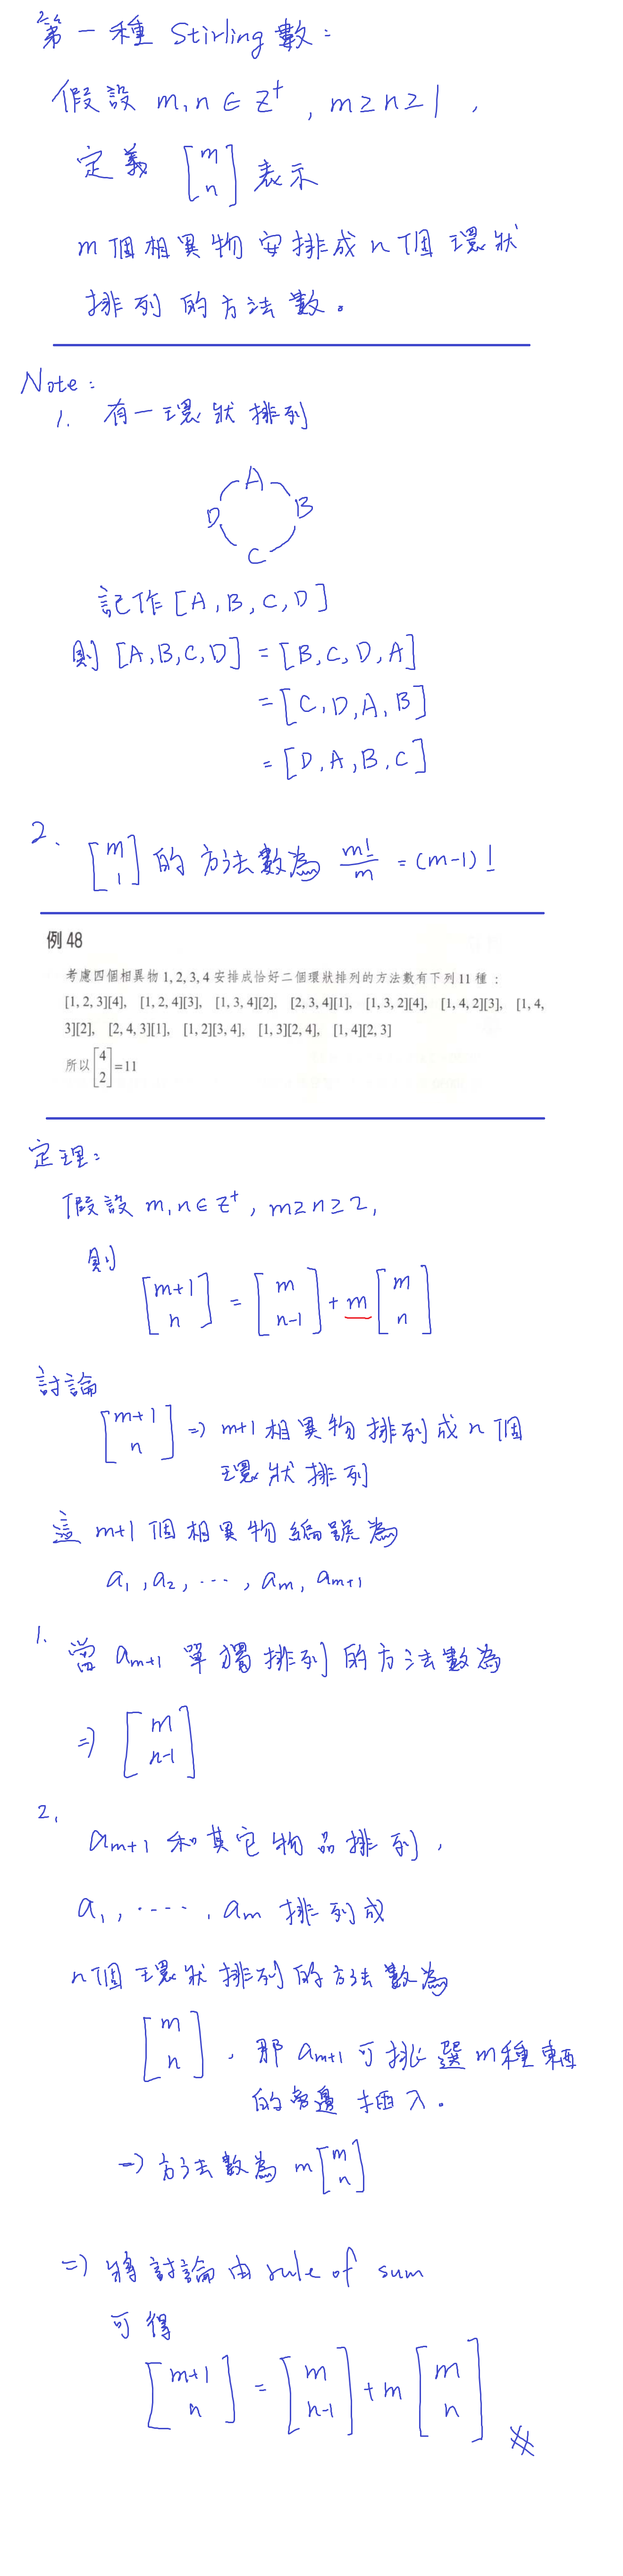 第一種 Stirling 數：
假設 m, n ∈ Z⁺, m ≥ n ≥ 1,
定義 [m n] 表示
m 個相異物安排成 n 個環狀
排列的方法數。
Note:
1. 有一環狀排列
A
D B
C
記作 [A, B, C, D]
則 [A, B, C, D] = [B, C, D, A]
= [C, D, A, B]
= [D, A, B, C]
2. [m 1] 的方法數為 m!/m = (m-1)!
例 48
考慮四個相異物 1, 2, 3, 4 安排成恰好二個環狀排列的方法數有下列 11 種：
[1, 2, 3][4], [1, 2, 4][3], [1, 3, 4][2], [2, 3, 4][1], [1, 3, 2][4], [1, 4, 2][3], [1, 4,
3][2], [2, 4, 3][1], [1, 2][3, 4], [1, 3][2, 4], [1, 4][2, 3]
所以 [4 2] = 11
定理：
假設 m, n ∈ Z⁺, m ≥ n ≥ 2,
則
[m+1 n] = [m n-1] + m [m n]
討論
[m+1 n] ⇒ m+1 相異物排列成 n 個
環狀排列
這 m+1 個相異物編號為
a₁, a₂, ⋯, aₘ, aₘ₊₁
1. 當 aₘ₊₁ 單獨排列的方法數為
⇒ [m n-1]
2.
aₘ₊₁ 和其它物品排列,
a₁, ⋯⋯, aₘ 排列成
n 個環狀排列的方法數為
[m n], 那 aₘ₊₁ 可挑選 m 種東西
的旁邊插入。
→ 方法數為 m [m n]
⇒ 將討論由 rule of sum
可得
[m+1 n] = [m n-1] + m [m n]